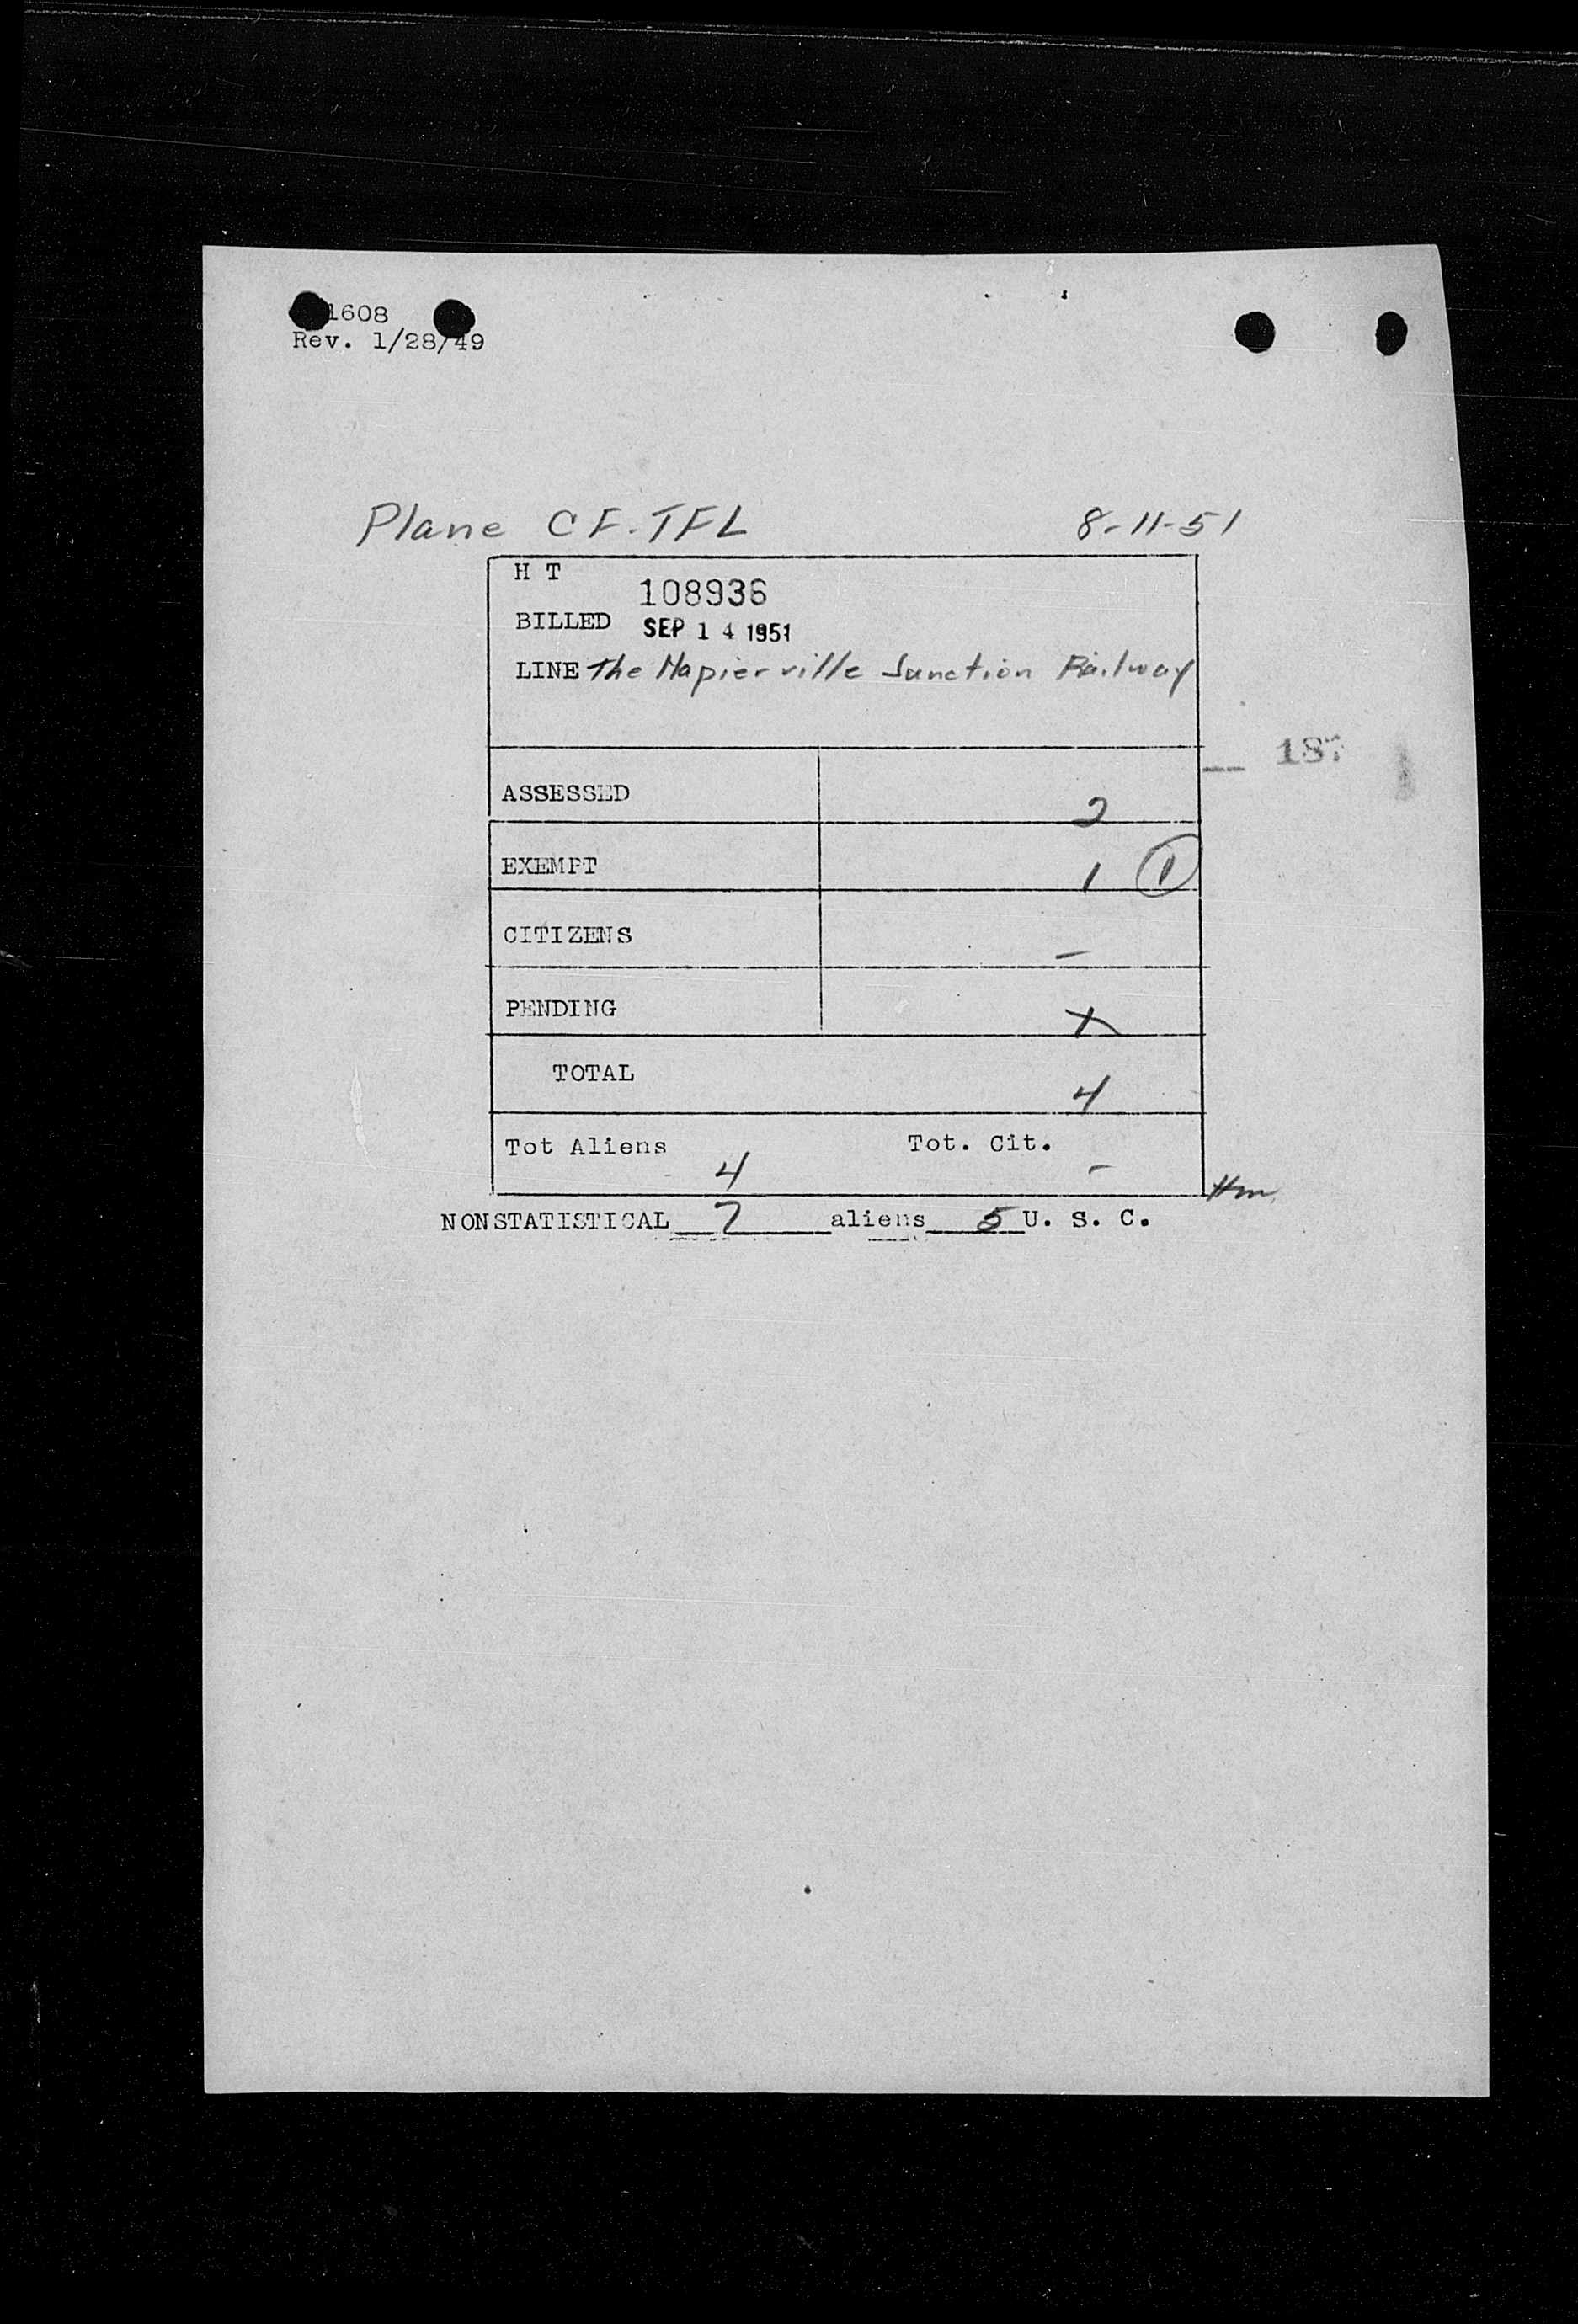 1608
Rev. 1/28/49
Plane CF-TFL 8-11-51
H T 108936
BILLED SEP 14 1951
LINE The Napierville Junction Railway
187
ASSESSED 2
EXEMPT 1 1
CITIZENS –
PENDING X
TOTAL 4
Tot Aliens 4 Tot. Cit. –
Hm
NONSTATISTICAL 7 aliens 5 U. S. C.